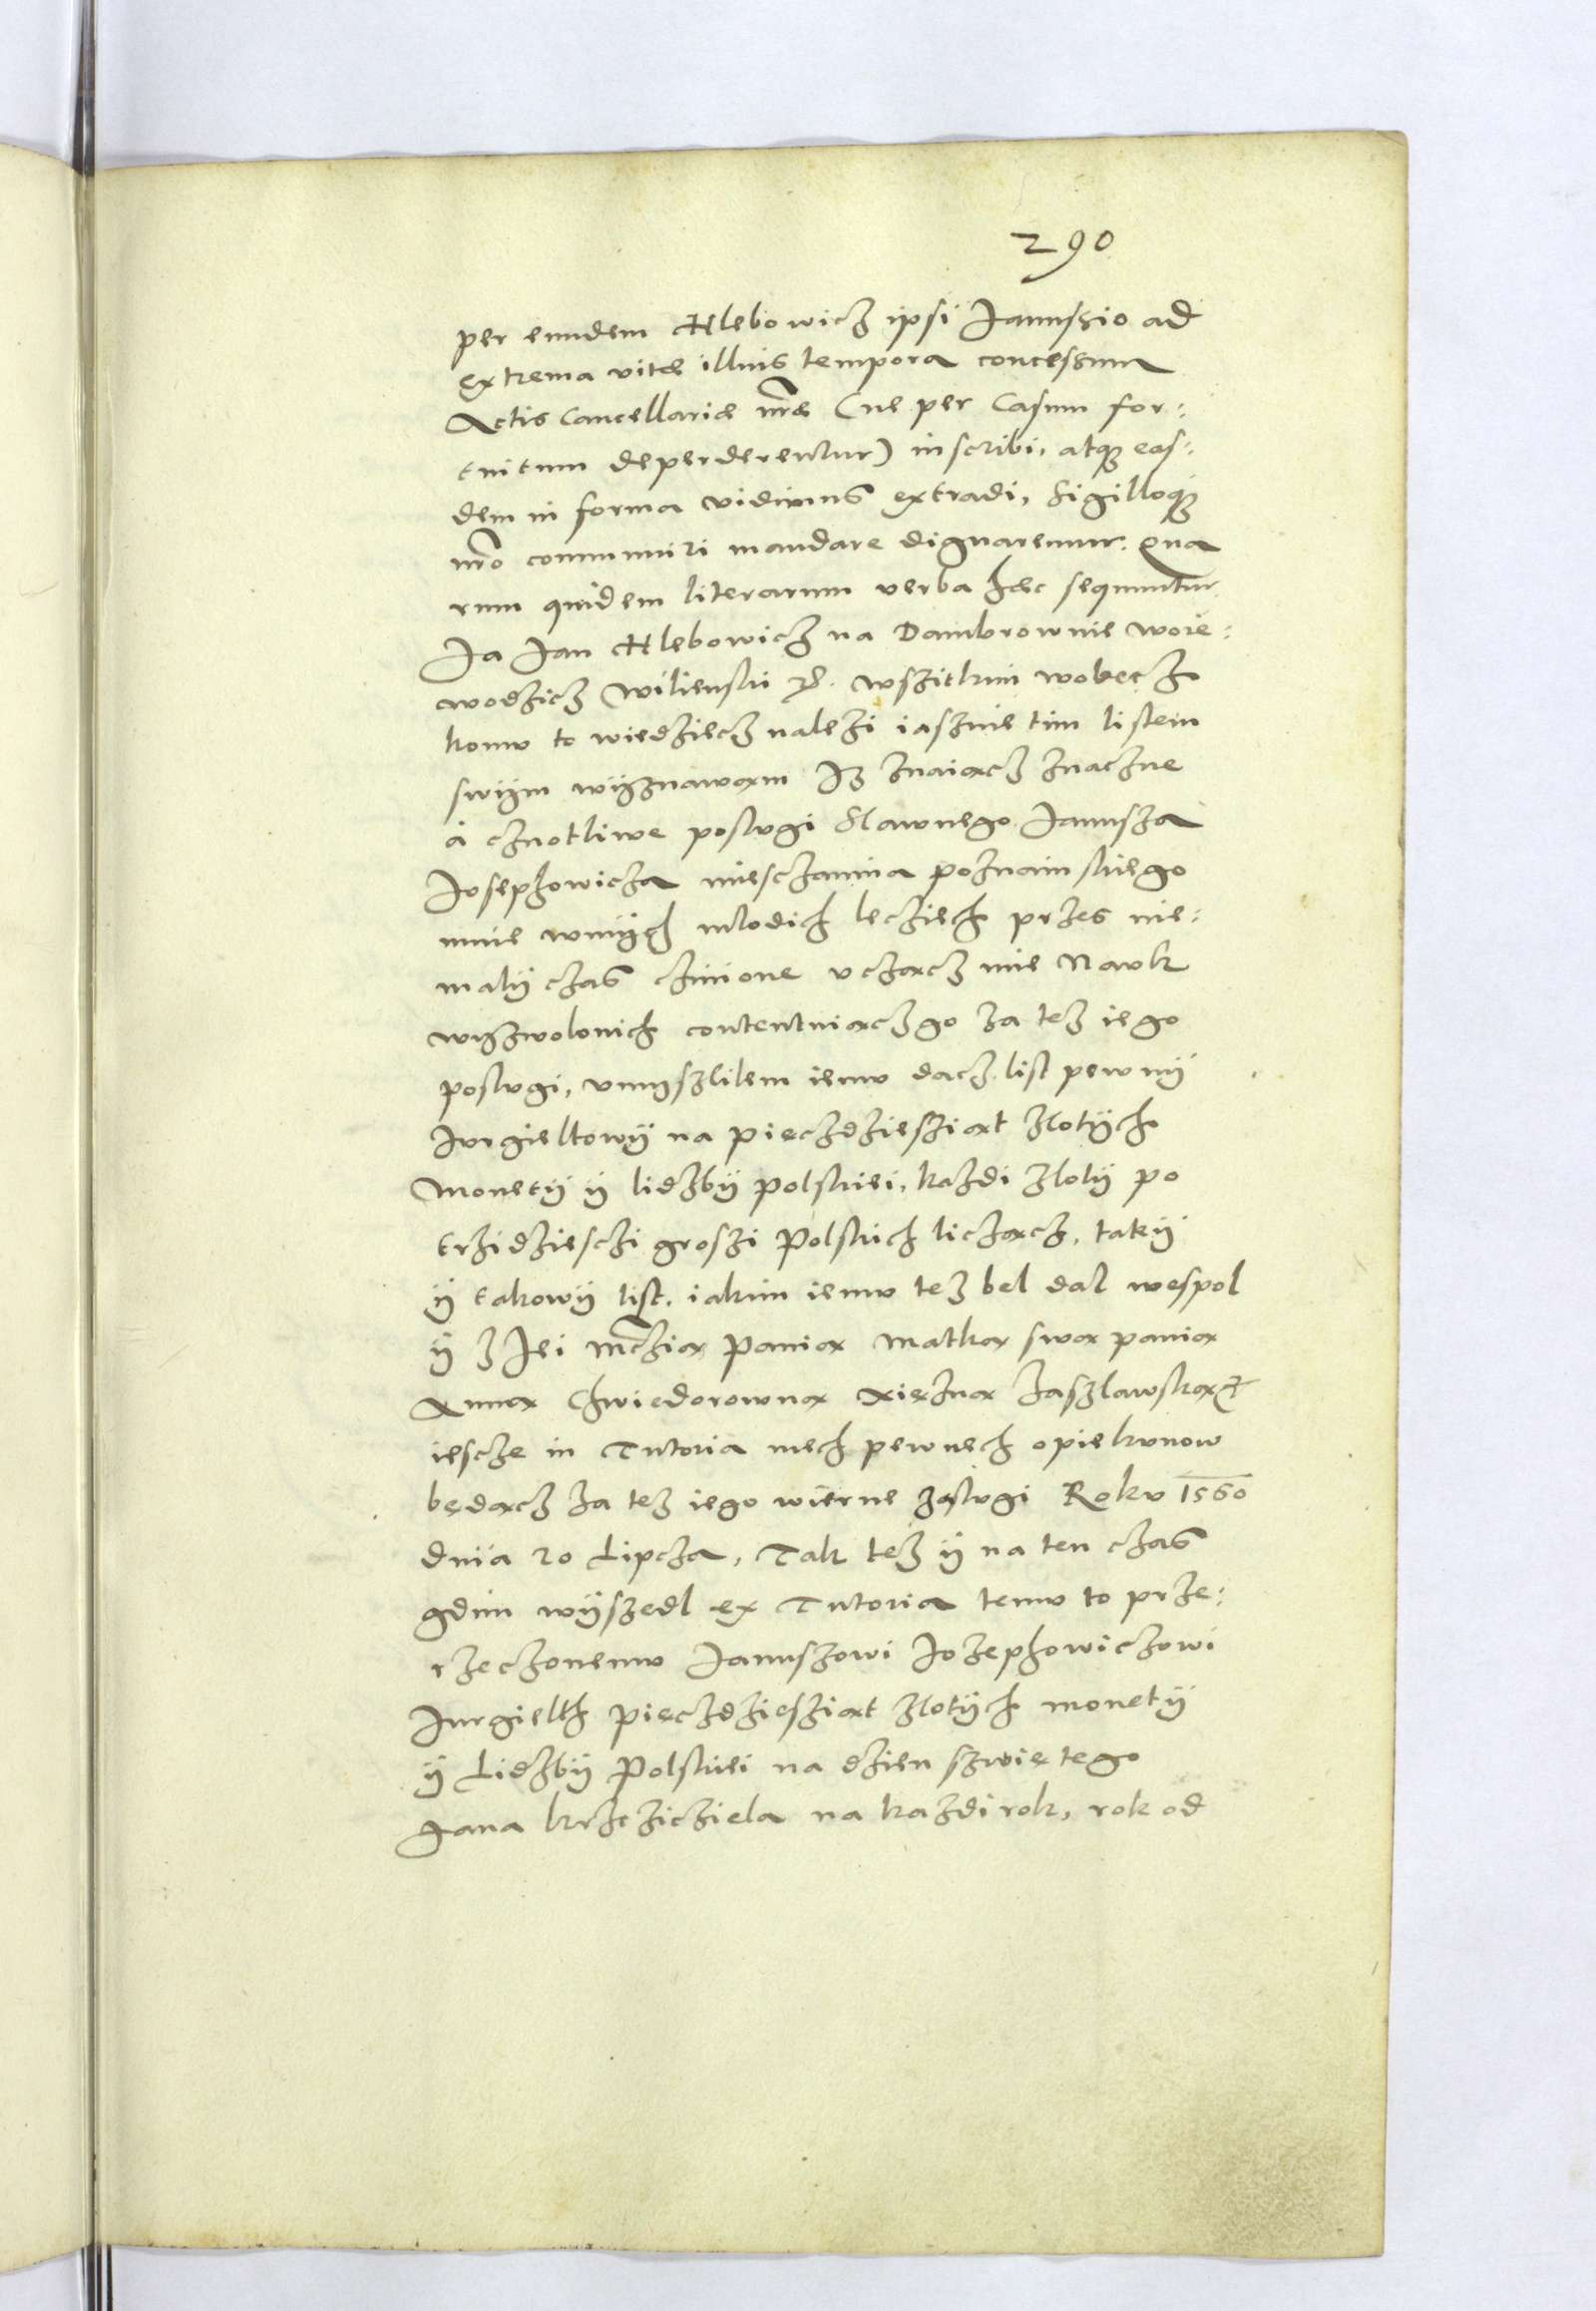 290
per eundem Hlebowicz ipsi Janussio ad
extrema vitæ illius tempora concessum
Actis Cancellariæ nr̃æ (ne per Casum for-
tuitum deperderentur) inscribi, atq; eas-
dem in forma vidimus extradi, Sigilloq;
nr̃o communiri mandare dignaremur. Qua
rum quidem literarum verba hæc sequuntur
Ja Jan Hlebowicz na Dambrownie woie-
wodzicz Wilienski etc. wszitkim wobecz
komu to wiedziecz nalezi iasznie tim listem
swÿm wÿznawam Jz znaiącz znaczne
á cznotliwe poslugi Slawnego Janusza
Josephowicza miesczanina poznainskiego
mnie wmÿch mlodich lecziech przes nie-
malÿ czas czinione vcząc mie Nauk
wÿzwolonich contentuiącz go za tez iego
poslugi, vmyszlilem iemu dacz list pewnÿ
Jurgieltowÿ na pięczdziesziąt zlotÿch
Monetÿ ÿ lidzbÿ polskiei, kazdi zlotÿ po
trzidziesczi groszi Polskich licząc, takÿ
ÿ takowÿ list, iakim iemu tez bel dal wespol
ÿ z Jei Mczią Panią Matką swą panią
Anną Chwiedorowną xiężną Zaszlawską etc
iescze in Tutoria mech pewnech opiekunow
będącz za tez iego wierne zaslugi Roku 1560
dnia 20 Lipcza, Tak tez ÿ na ten czas
gdim wÿszedl ex Tutoria temu to prze-
rzeczonemu Januszowi Jozephowiczowi
Jurgielth pięczdziesziąt zlotÿch monetÿ
ÿ Lidzbÿ Polskiei na dzien szwiętego
Jana krzcziciela na kazdi rok, rok od